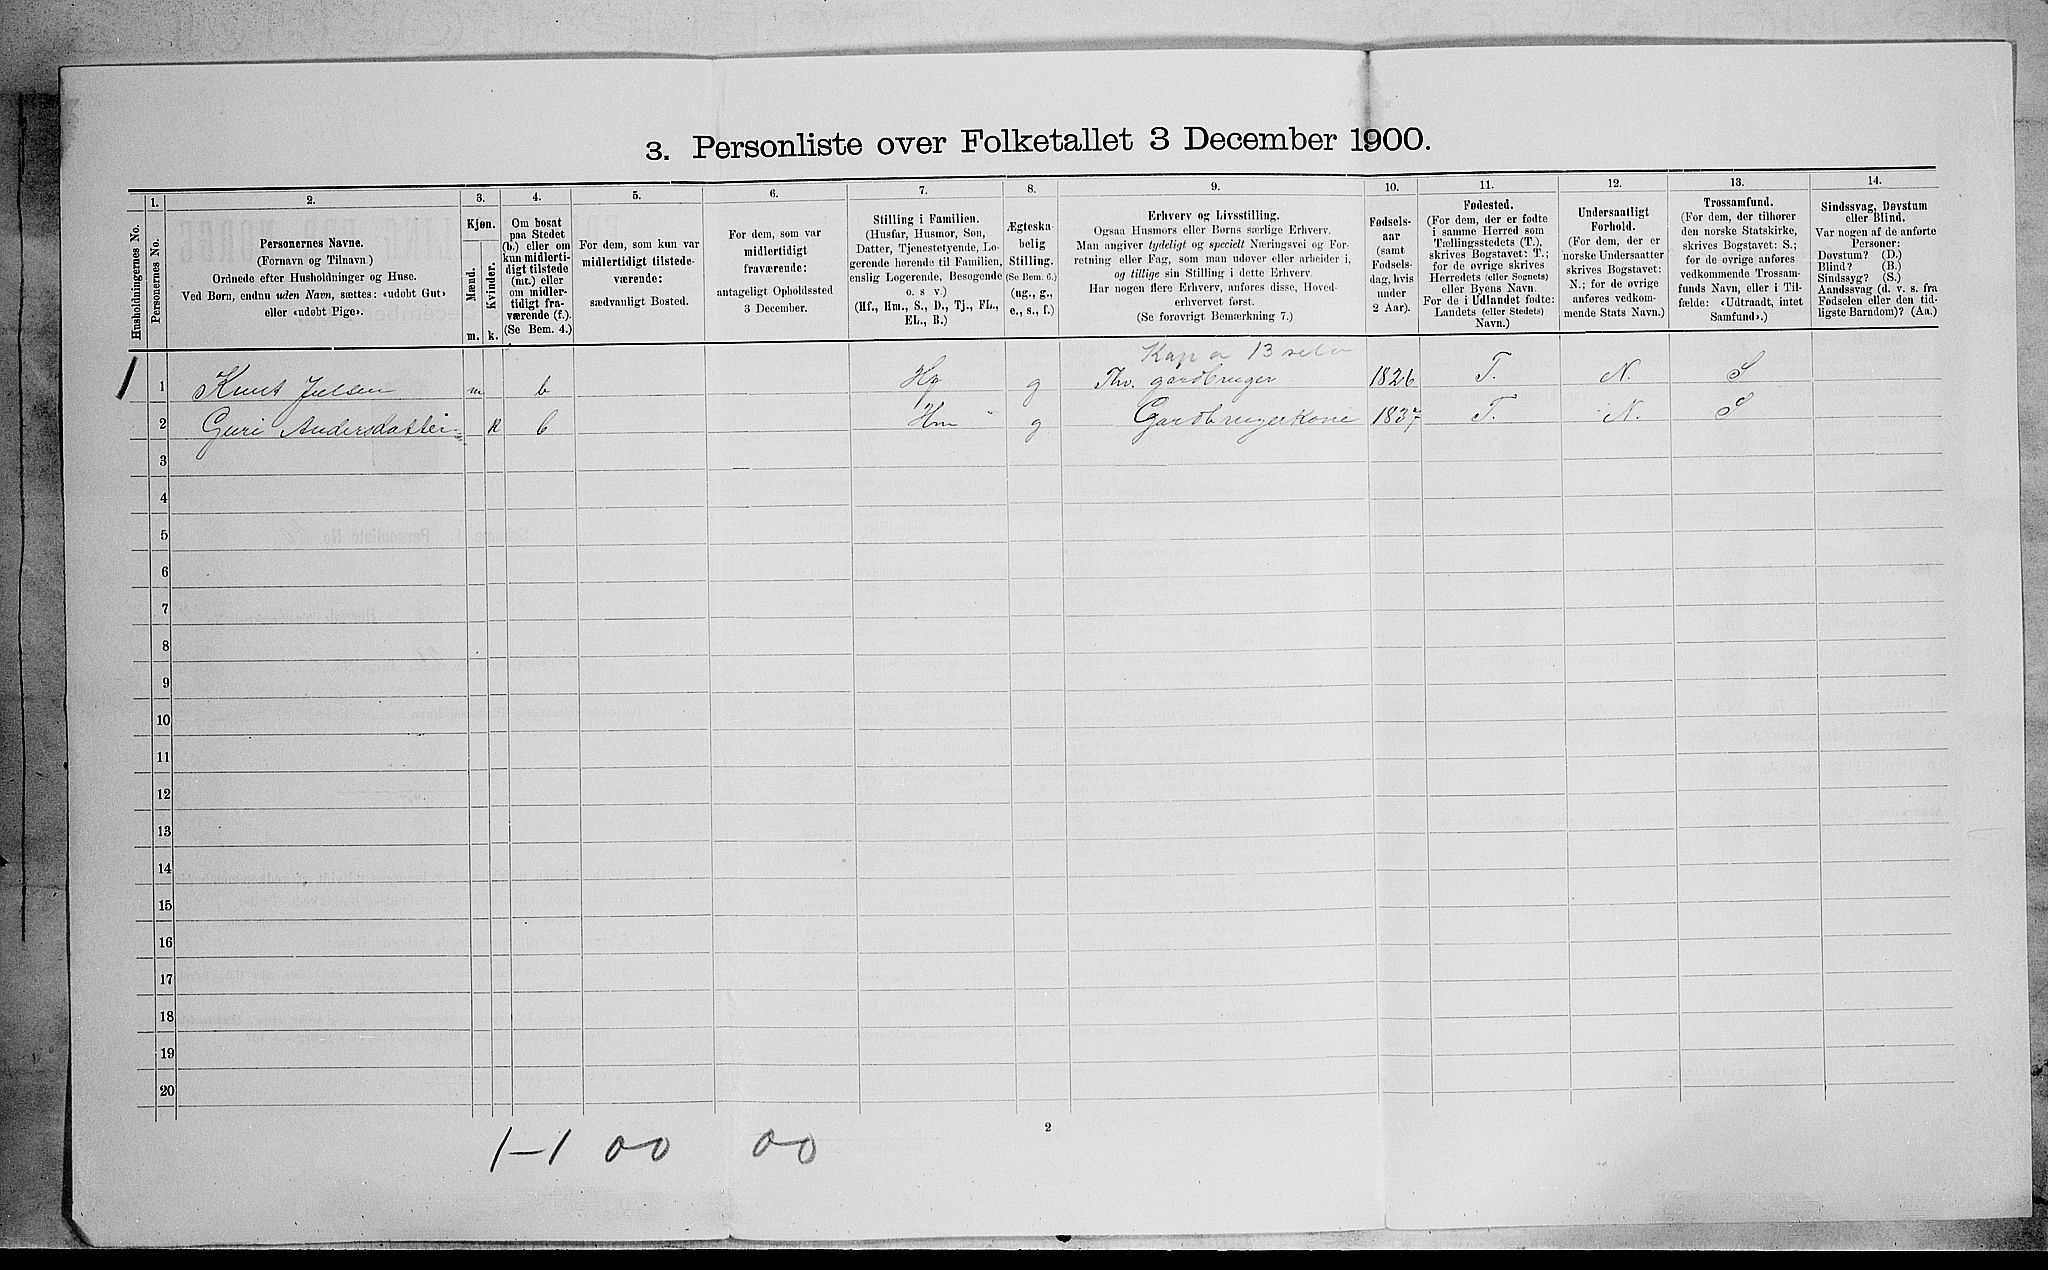 3. Personliste over Folketallet 3 December 1900.
Husholdningernes No.
1.
Personernes No.
2.
Personernes Navne.
(Fornavn og Tilnavn)
Ordnede efter Husholdninger og Huse.
Ved Børn, endnu uden Navn, sættes: «udøbt Gut»
eller «udøbt Pige».
3.
Kjøn.
Mænd.
Kvinder.
m. k.
4.
Om bosat
paa Stedet
(b.) eller om
kun midlerti-
digt tilstede
(mt.) eller
om midler-
tidigt fra-
værende (f.).
(Se Bem. 4.)
5.
For dem, som kun var
midlertidigt tilstede-
værende:
sædvanligt Bosted.
6.
For dem, som var
midlertidigt
fraværende:
antageligt Opholdssted
3 December.
7.
Stilling i Familien.
(Husfar, Husmor, Søn,
Datter, Tjenestetyende, Lo-
gerende hørende til Familien,
enslig Logerende, Besøgende
o. s v.)
(Hf., Hm., S., D., Tj., FL.,
EL., B.)
8.
Ægteska-
belig
Stilling.
(Se Bem. 6.)
(ug., g.,
e., s., f.)
9.
Erhverv og Livsstilling.
Ogsaa Husmors eller Børns særlige Erhverv.
Man angiver tydeligt og specielt Næringsvei og For-
retning eller Fag, som man udøver eller arbeider i,
og tillige sin Stilling i dette Erhverv.
Har nogen flere Erhverv, anføres disse, Hoved-
erhvervet først.
(Se forøvrigt Bemærkning 7.)
10.
Fødsels-
aar
(samt
Fødsels-
dag, hvis
under
2 Aar).
11.
Fødested.
(For dem, der er fødte
i samme Herred som
Tællingsstedets (T.),
skrives Bogstavet: T.;
for de øvrige skrives
Herredets (eller Sognets)
eller Byens Navn.
For de i Udlandet fødte:
Landets (eller Stedets)
Navn.)
12.
Undersaatligt
Forhold.
(For dem, der er
norske Undersaatter
skrives Bogstavet:
N.; for de øvrige
anføres vedkom-
mende Stats Navn.)
13.
Trossamfund.
(For dem, der tilhører
den norske Statskirke,
skrives Bogstavet: S.;
for de øvrige anføres
vedkommende Trossam-
funds Navn, eller i Til-
fælde: «Udtraadt, intet
Samfund».)
14.
Sindssvag, Døvstum
eller Blind.
Var nogen af de anførte
Personer:
Døvstum? (D.)
Blind? (B.)
Sindssyg? (S.)
Aandssvag (d. v. s. fra
Fødselen eller den tid-
ligste Barndom)? (Aa.)
1 1 Knut Julsen m b g gardbruger 1826 T. N. S
2 Guri Andersdatter k b Hm g Gardbrugerkone 1837 T. N. S
3
4
5
6
7
8
9
10
11
12
13
14
15
16
17
18
19
20
1-1 00 00
2